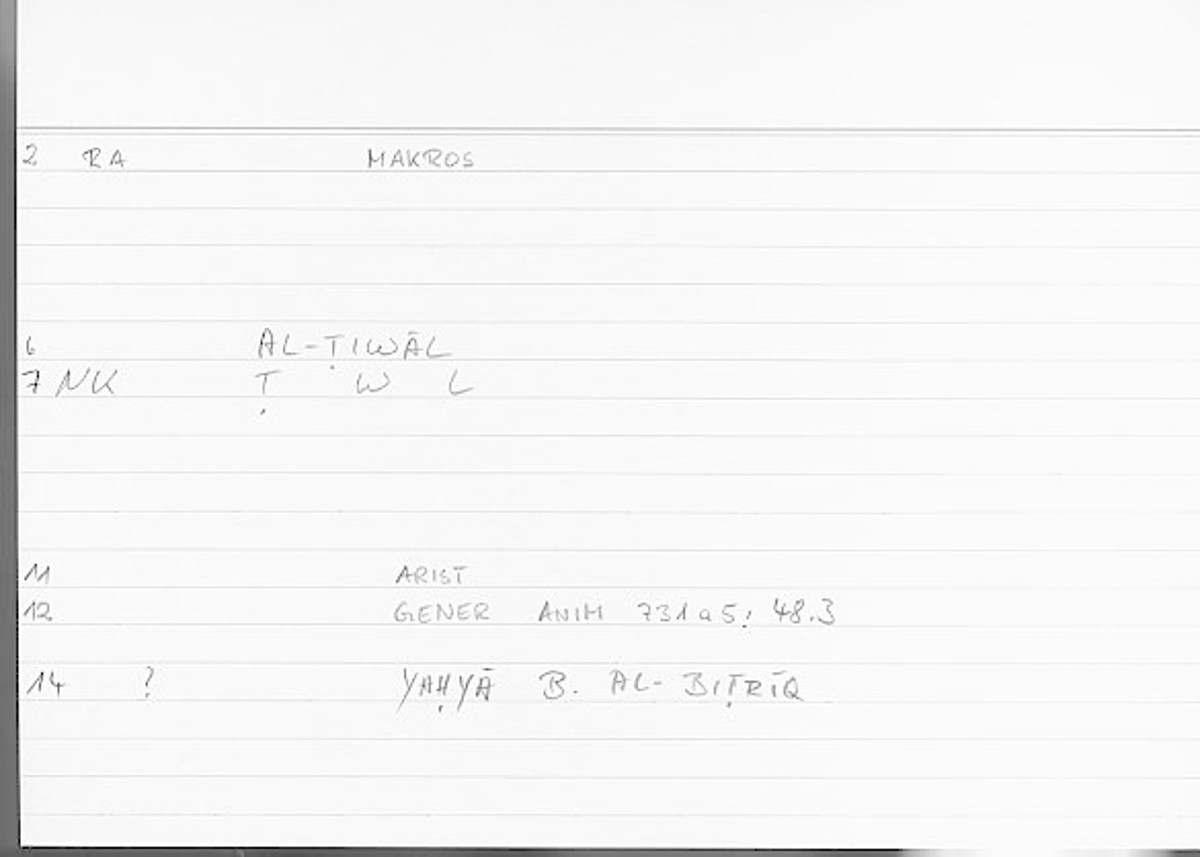 2 RA MAKROS
6 AL-ṬIWĀL
7 NK Ṭ W L
11 ARIST
12 GENER ANIM 731a5; 48.3
14 ? YAḤYĀ B. AL-BIṬRĪQ